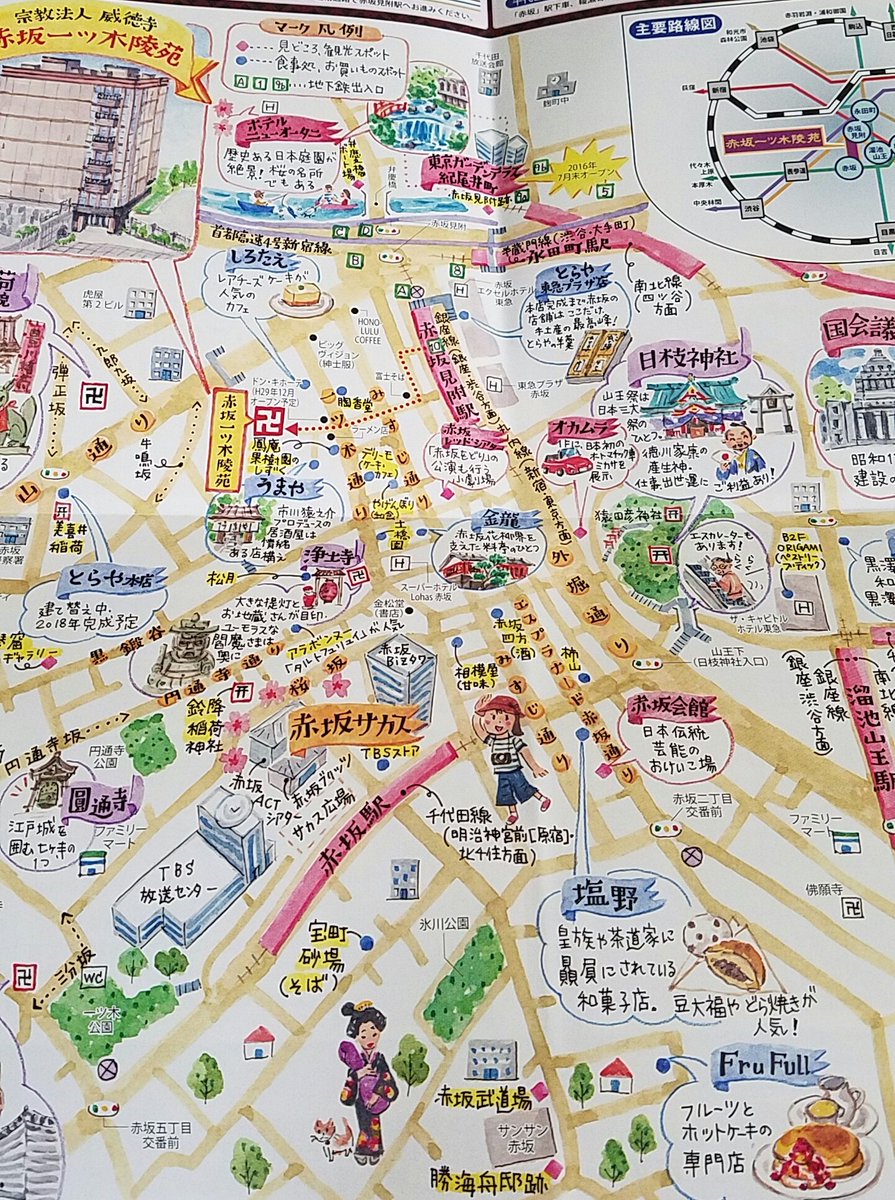 宗教法人 威徳寺
赤坂一ツ木陵苑
マーク凡例
…見どころ、観光スポット
…食事処、お買いものスポット
A 1 9b …地下鉄出入口
「赤坂」駅下車、
主要路線図
和光市
森林公園
池袋
赤羽岩淵・浦和美園
駒込
荻窪
新宿
永田町
赤坂見附
赤坂一ツ木陵苑
溜池山王
赤坂
表参道
代々木上原
本厚木
中央林間
渋谷
日吉
千代田放送会館
麹町中
ホテルニューオータニ
歴史ある日本庭園が
絶景！桜の名所
でもある
弁慶橋ボート場
弁慶橋
東京ガーデンテラス
紀尾井町
2016年
7月末オープン
赤坂見附跡
赤坂見附
首都高速4号新宿線
半蔵門線(渋谷・大手町)
永田町駅
南北線
(四ツ谷)
方面
しろたえ
レアチーズケーキが
人気の
カフェ
虎屋
第2ビル
HONO
LULU
COFFEE
ビッグ
ヴィジョン
(紳士服)
富士そば
ドン・キホーテ
(H29年12月
オープン予定)
陶香堂
ラーメン店
赤坂エクセルホテル東急
とらや
東急プラザ店
本店完成まで赤坂の
店舗はここだけ。
手土産の最高峰！
とらやの羊羹
東急プラザ
赤坂
銀座線(銀座・渋谷方面)
赤坂見附駅
丸ノ内線(新宿・東京方面)
赤坂
レッドシアター
「赤坂をどり」の
公演も行う
小劇場
オカムラ
1Fに、日本初の
オートマチック車
ミカサを
展示
日枝神社
山王祭は
日本三大
祭のひとつ。
徳川家康の
産土神。
仕事、出世運に
ご利益あり！
国会議
昭和1
建設の
九郎九坂
弾正坂
牛鳴坂
山通り
赤坂一ツ木陵苑
鳳庵
果樹園の
しずく
一ツ木通り
みすじ通り
デリーモ
(ケーキ・カフェ)
やげんぼり
(和食)
土橋園
うまや
市川猿之介
プロデュースの
居酒屋は
情緒
ある店構え
金龍
赤坂花柳界を
支えた料亭のひとつ
外堀通り
猿田彦神社
エスカレーターも
あります！
らくらく
B2F
ORIGAMI
(ペストリーブティック)
ザ・キャピトル
ホテル東急
美喜井稲荷
とらや本店
建て替え中。
2018年完成予定
ギャラリー
松月
浄土寺
大きな提灯と
お地蔵さんが目印。
ユーモラスな
閻魔さまは
奥に
金松堂
(書店)
スーパーホテル
Lohas 赤坂
アラボンヌー
「タルトフリュイ」が人気
黒鍛谷
円通寺通り
桜坂
鈴降稲荷神社
赤坂
Bizタワー
相模屋
(甘味)
赤坂四方
(酒)
柿山
エスプラナード赤坂通り
みすじ通り
山王下
(日枝神社入口)
銀座線
(渋谷・銀座方面)
溜池山王駅
円通寺坂
円通寺
公園
赤坂サカス
TBSストア
赤坂
ACT
シアター
赤坂ブリッツ
サカス広場
赤坂駅
千代田線
(明治神宮前[原宿]・
北千住方面)
赤坂会館
日本伝統
芸能の
おけいこ場
圓通寺
江戸城を
囲む七ヶ寺の
1つ
ファミリー
マート
TBS
放送センター
赤坂二丁目
交番前
ファミリー
マート
佛願寺
三分坂
WC
一ツ木
公園
室町
砂場
(そば)
氷川公園
塩野
皇族や茶道家に
贔屓にされている
和菓子店。豆大福やどら焼きが
人気！
赤坂五丁目
交番前
赤坂武道場
サンサン
赤坂
勝海舟邸跡
Fru Full
フルーツと
ホットケーキの
専門店